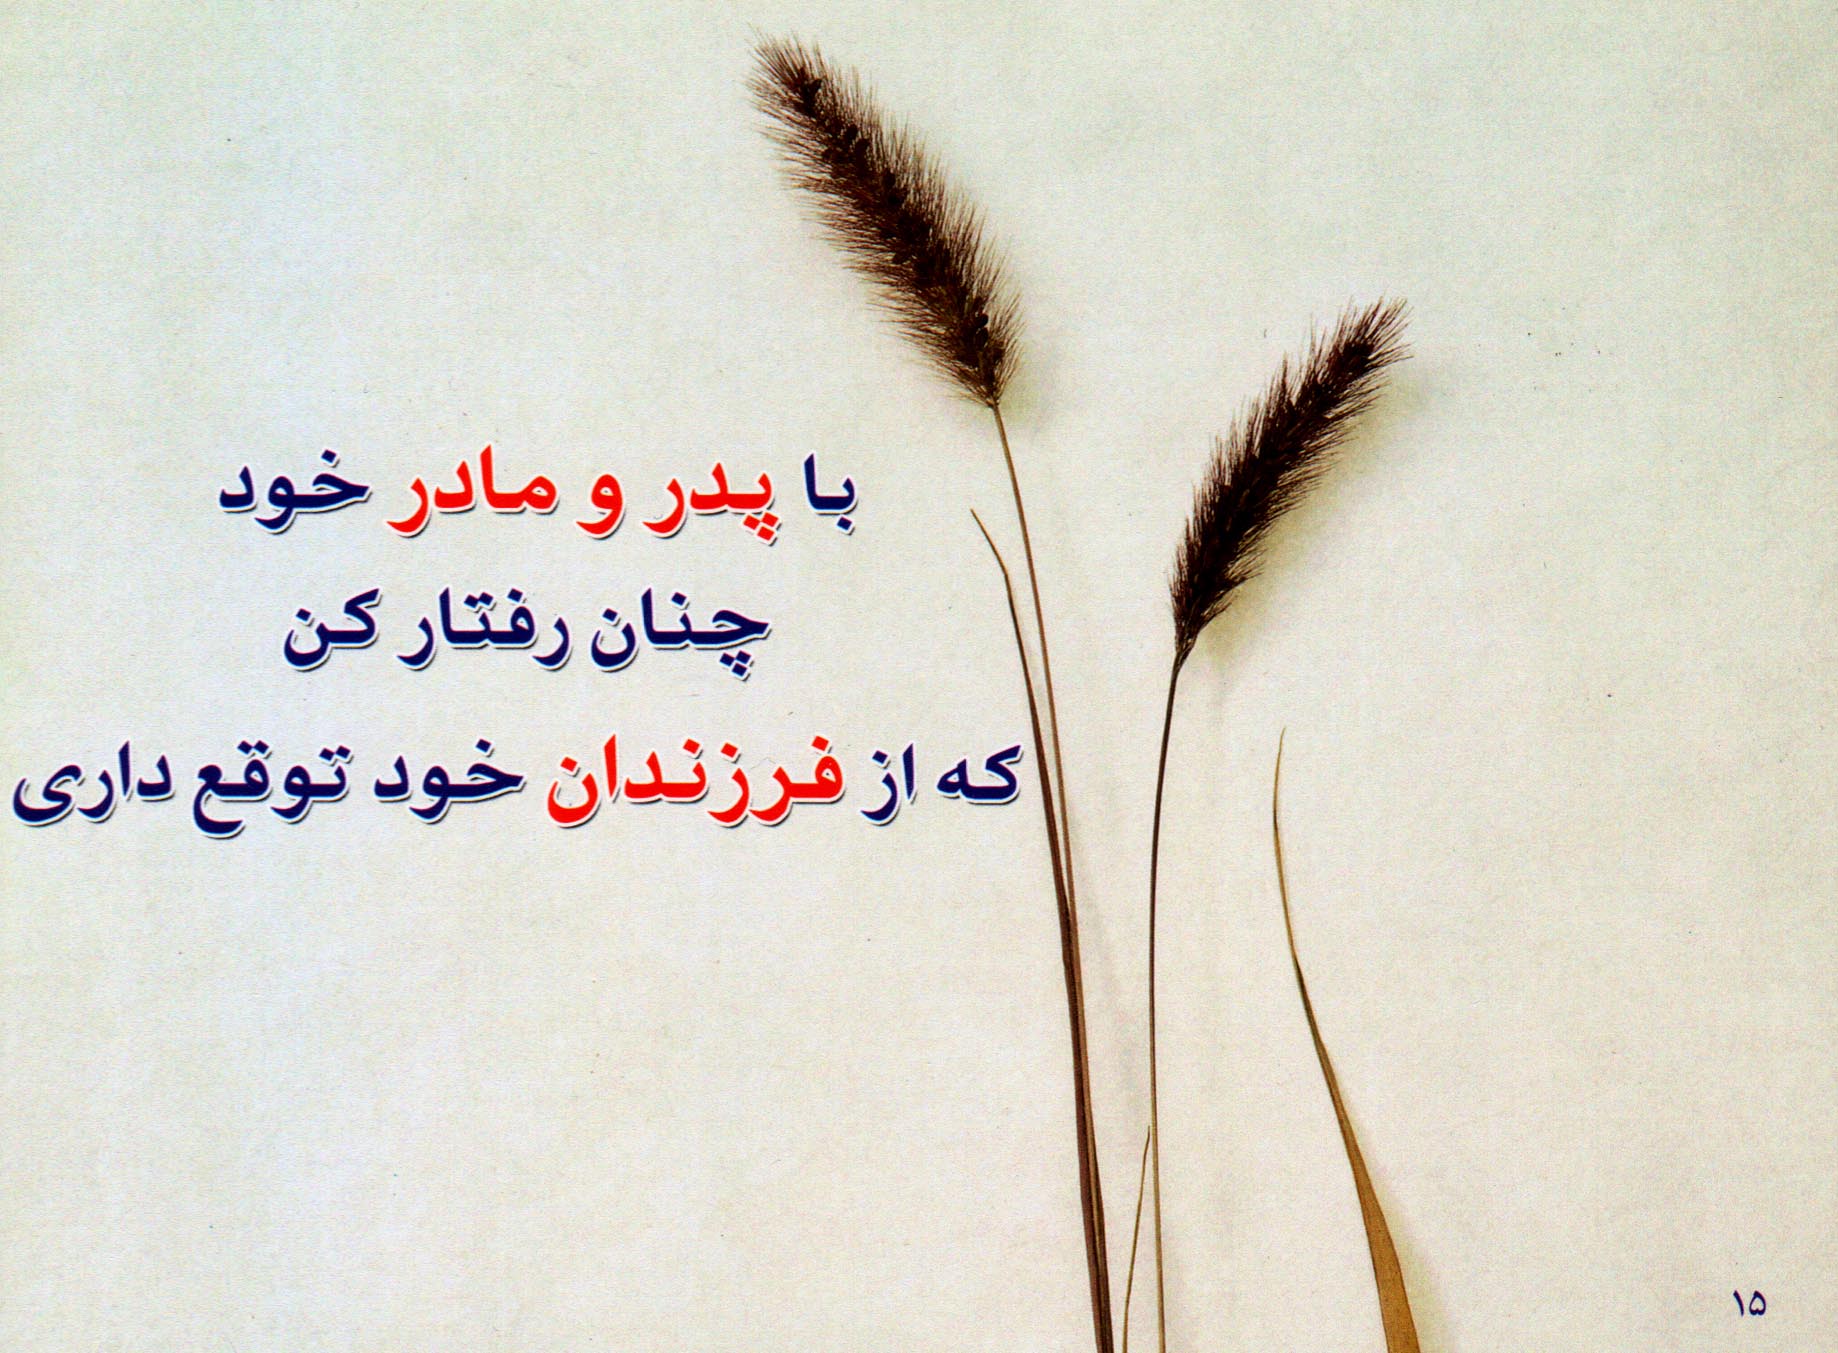 با پدر و مادر خود
چنان رفتار کن
که از فرزندان خود توقع داری
۱۵